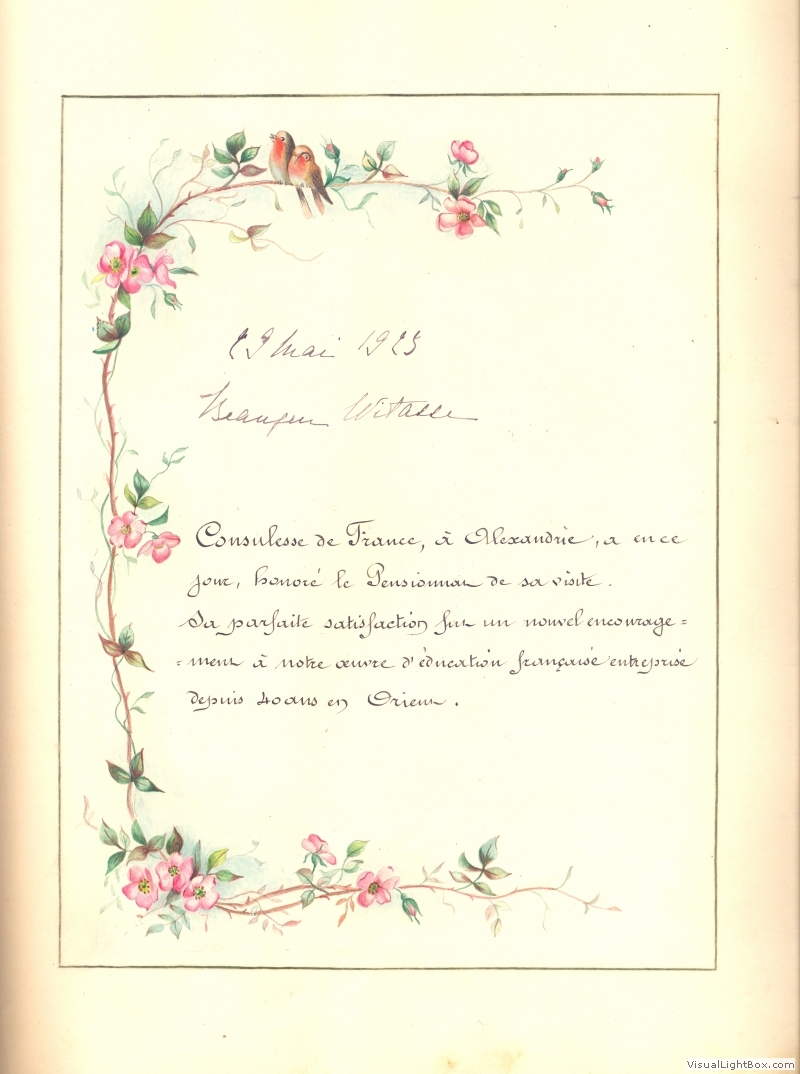 29 Mai 1925
Witasse
Consulesse de France, à Alexandrie, a en ce
jour, honoré le Pensionnat de sa visite.
Sa parfaite satisfaction fut un nouvel encourage=
=ment à notre œuvre d'éducation française entreprise
depuis 40 ans en Orient.
VisualLightBox.com